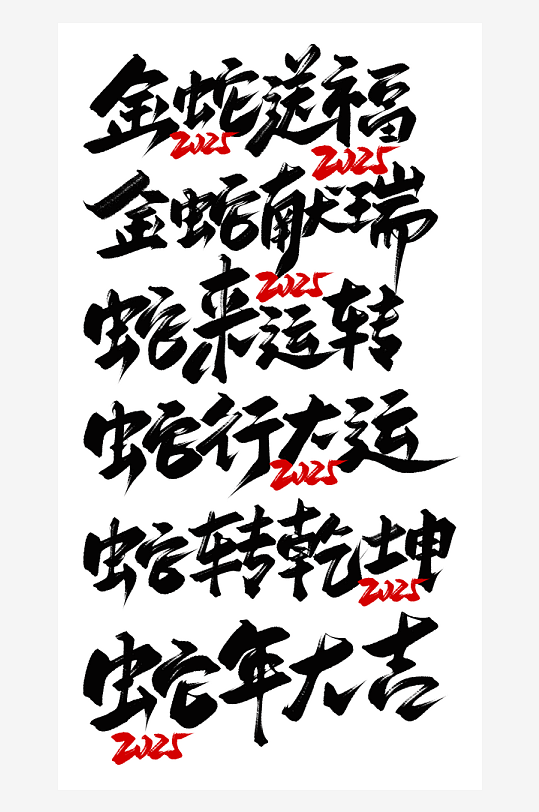 金蛇送福
2025
2025
金蛇献瑞
2025
蛇来运转
蛇行大运
2025
蛇转乾坤
2025
蛇年大吉
2025